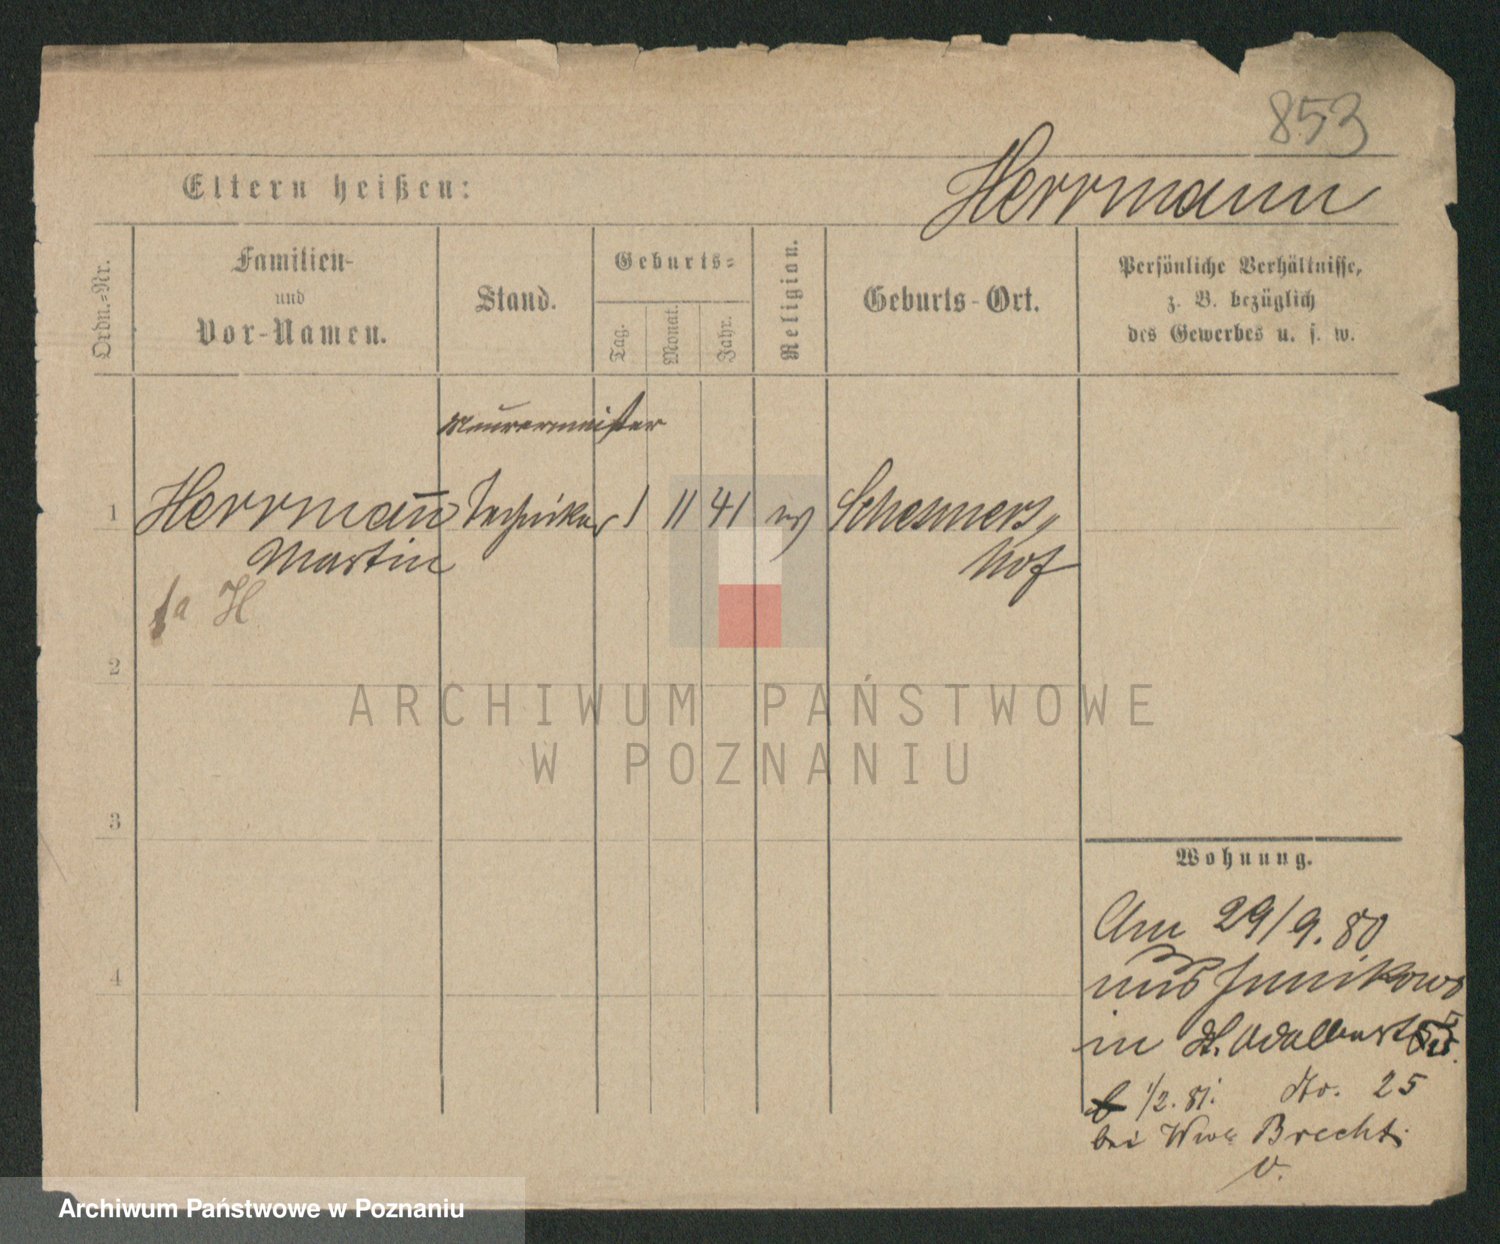 853
Eltern heißen: Herrmann
Ordn.-Nr.
Familien-
und
Vor-Namen.
Stand.
Geburts-
Tag.
Monat.
Jahr.
Religion.
Geburts-Ort.
Persönliche Verhältnisse,
z. B. bezüglich
des Gewerbes u. s. w.
Maurermeister
1 Herrmann̄ Techniker 1 11 41
Martin Hof
H
2
3
4
Wohnung.
Am 29/9. 80
aus Junikowo
in St. Adalbert
1/2. 81. No. 25
bei Wwe Brecht.
v.
ARCHIWUM PAŃSTWOWE
W POZNANIU
Archiwum Państwowe w Poznaniu